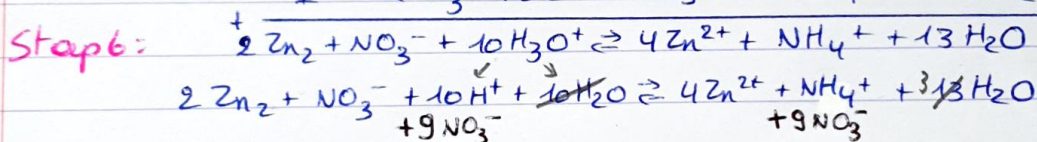 3
+
Stap 6: 2 Zn₂ + NO₃⁻ + 10 H₃O⁺ ⇄ 4 Zn²⁺ + NH₄⁺ + 13 H₂O
2 Zn₂ + NO₃⁻ + 10 H⁺ + 10H₂O ⇄ 4 Zn²⁺ + NH₄⁺ + ³13 H₂O
+9 NO₃⁻ +9 NO₃⁻